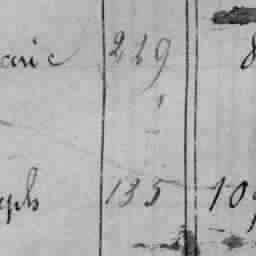 arie 229 8
eph 135 10